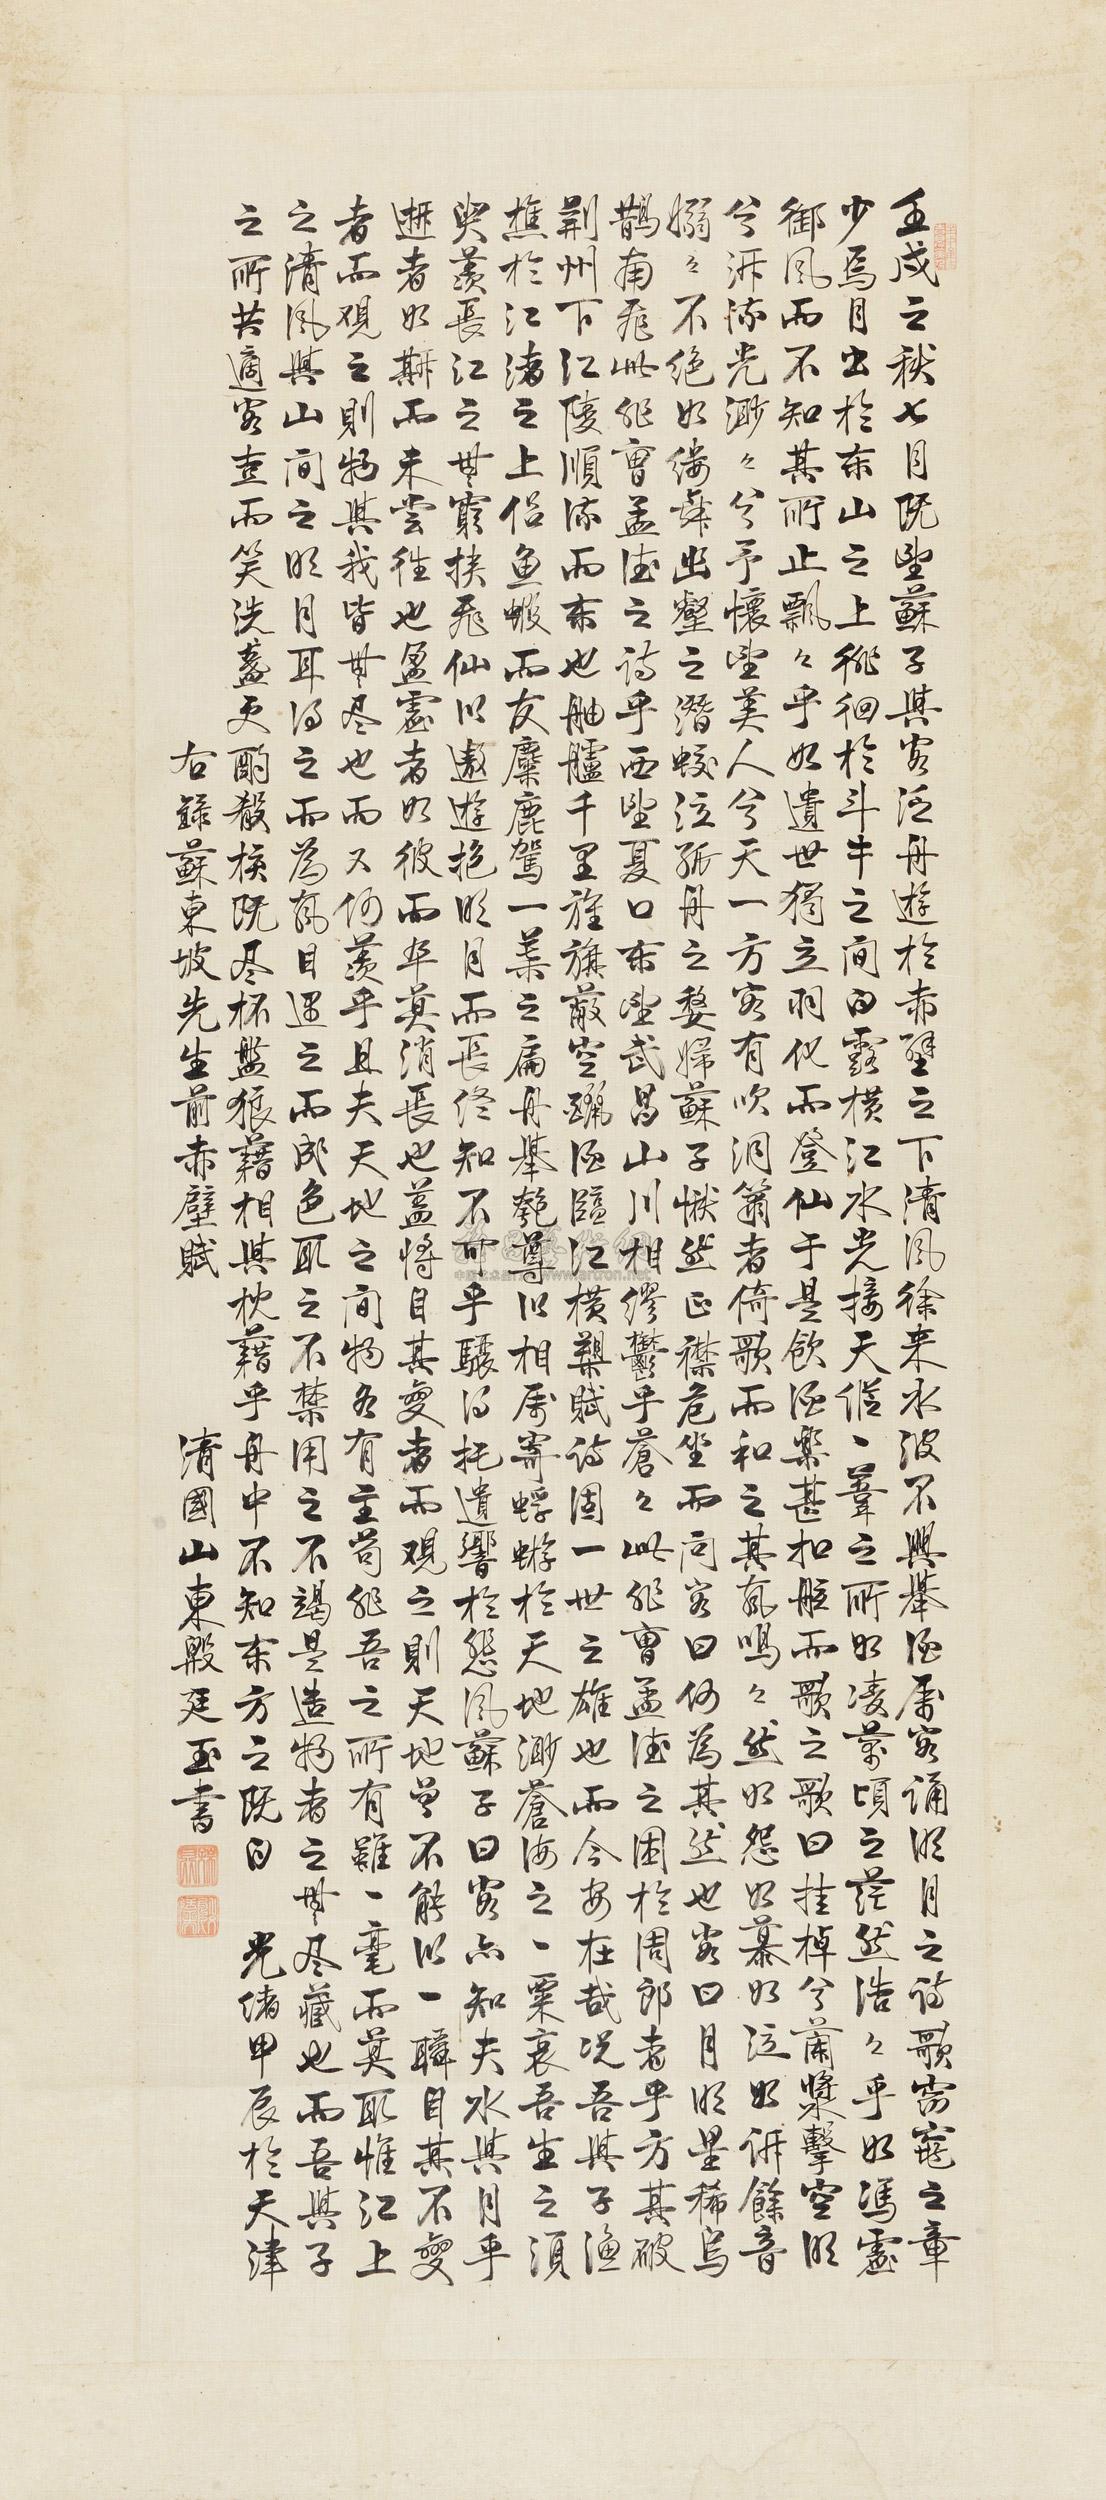 壬戌之秋七月既望蘇子與客泛舟遊於赤壁之下清風徐来水波不興舉酒属客誦明月之詩歌窈窕之章
少焉月出於东山之上徘徊於斗牛之间白露橫江水光接天縱一葦之所如凌萬頃之茫然浩々乎如馮虛
御風而不知其所止飄々乎如遺世獨立羽化而登仙于是飲酒樂甚扣舷而歌之歌曰桂棹兮蘭槳擊空明
兮泝流光渺々兮予懷望美人兮天一方客有吹洞簫者倚歌而和之其聲嗚々然如怨如慕如泣如訴餘音
嫋々不絕如缕舞幽壑之潛蛟泣孤舟之嫠婦蘇子愀然正襟危坐而问客曰何為其然也客曰月明星稀烏
鵲南飛此非曹孟德之詩乎西望夏口东望武昌山川相缪鬱乎蒼々此非曹孟德之困於周郎者乎方其破
荆州下江陵順流而东也舳艫千里旌旗蔽空釃酒臨江橫槊賦詩固一世之雄也而今安在哉况吾與子漁
樵於江渚之上侣鱼蝦而友麋鹿駕一葉之扁舟舉匏尊以相属寄蜉蝣於天地渺蒼海之一粟哀吾生之須
臾羡長江之無窮挟飛仙以遨遊抱明月而長终知不可乎驟得托遺響於悲風蘇子曰客亦知夫水與月乎
逝者如斯而未嘗往也盈虛者如彼而卒莫消長也蓋將自其变者而观之則天地曾不能以一瞬自其不變
者而观之則物與我皆無尽也而又何羡乎且夫天地之间物各有主苟非吾之所有雖一毫而莫取惟江上
之清風與山间之明月耳得之而為聲目遇之而成色取之不禁用之不竭是造物者之無尽藏也而吾與子
之所共適客喜而笑洗盏更酌殽核既尽杯盤狼藉相與枕藉乎舟中不知东方之既白 光緒甲辰於天津
右錄蘇東坡先生前赤壁賦 清國山東殿廷玉書